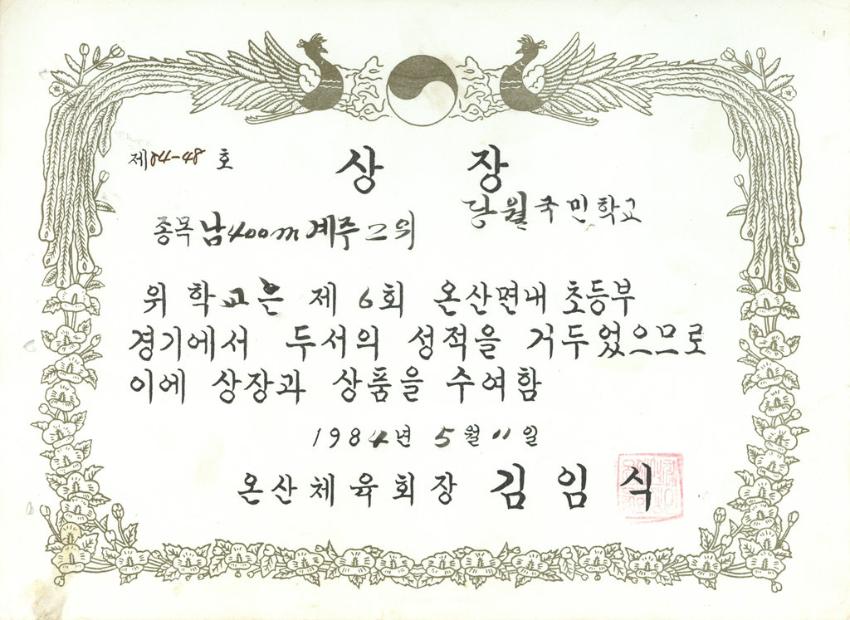 제84-48호
상장
당월국민학교
종목 남400m계주 2위
위 학교은 제 6회 온산면내 초등부
경기에서 두서의 성적을 거두었으므로
이에 상장과 상품을 수여함
1984년 5월 11일
온산체육회장 김임식